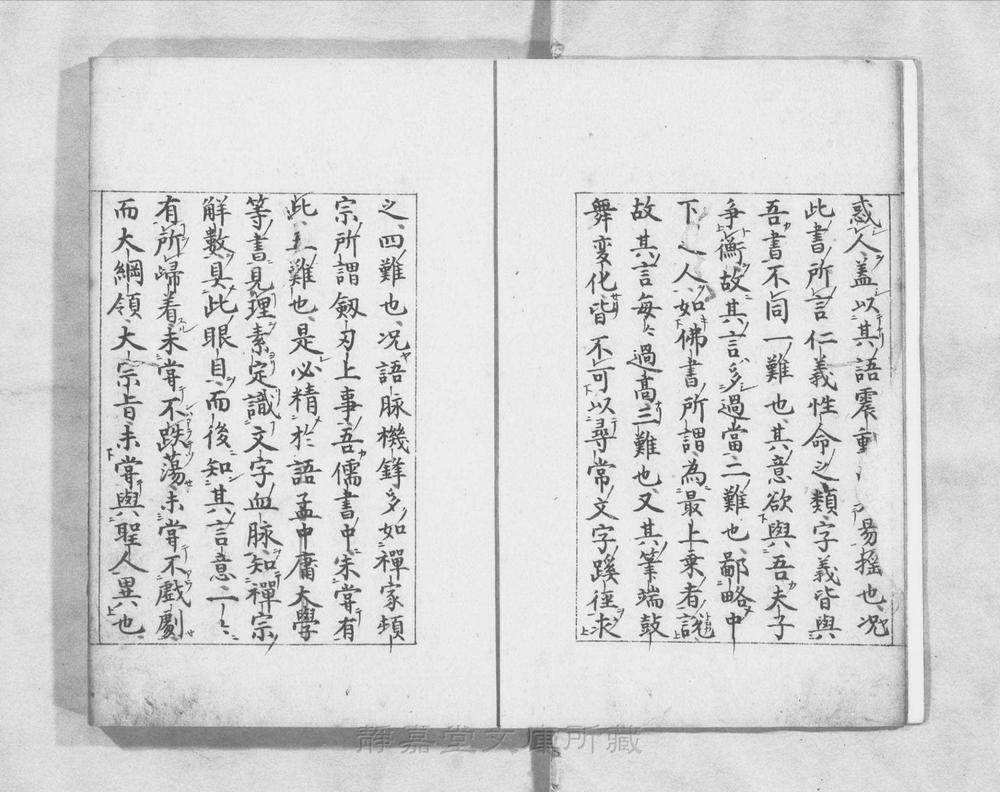 惑人、盖以其語震動 易揺也、况
此書所言仁義性命之類字義皆與
吾書不同一難也、其意欲與吾夫子
争衡、故其言多過當二難也、鄙略中
下之人、如佛書所謂、為最上乗者説
故其言毎〻過高三難也、又其筆端鼓
舞変化、皆不可以尋常文字蹊径求
之、四難也、况語脉機鋒多如禪家頓
宗、所謂劔刃上事、吾儒書中未甞有
此、五難也、是必精於語孟中庸大學
等書見理素定識文字血脉、知禪宗
解數、具此眼目、而後知其言意一一
有所歸着、未甞不跌蕩、未甞不戯劇
而大綱領、大宗旨未甞與聖人異也、
静嘉堂文庫所蔵